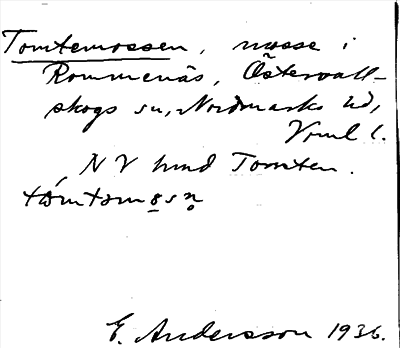 Tomtemossen, mosse i
Rommenäs, Östervall-
skogs sn, Nordmarks hd,
Vrml l.
NV hmd Tomten.
E. Andersson 1936.